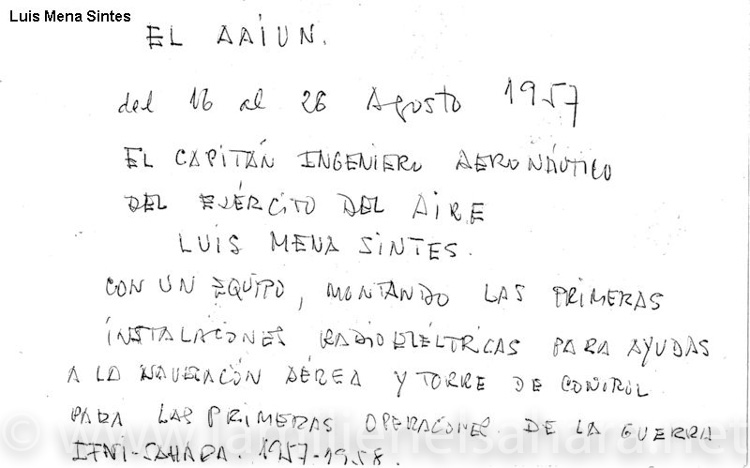 Luis Mena Sintes
EL AAIUN.
del 16 al 26 Agosto 1957
EL CAPITÁN INGENIERO AERONÁUTICO
DEL EJÉRCITO DEL AIRE
LUIS MENA SINTES.
CON UN EQUIPO, MONTANDO LAS PRIMERAS
INSTALACIONES RADIOELÉCTRICAS PARA AYUDAS
A LA NAVEGACIÓN AÉREA Y TORRE DE CONTROL
PARA LAS PRIMERAS OPERACIONES DE LA GUERRA
IFNI-SAHARA. 1957-1958.
© www.lamilienelsahara.net